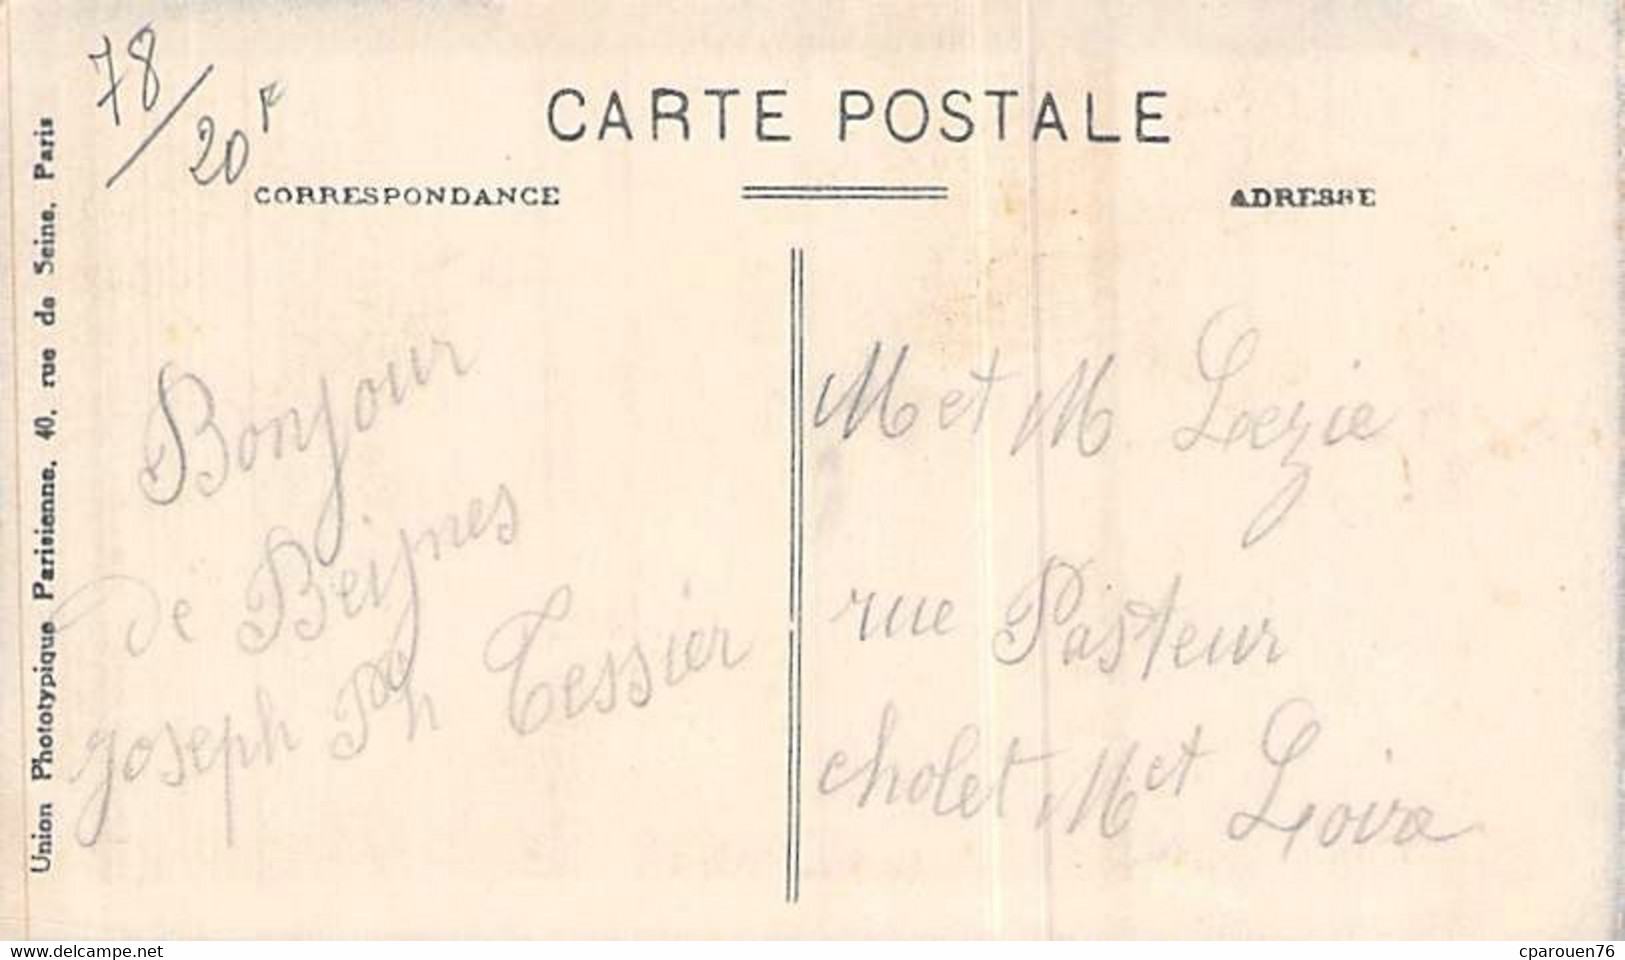 78/20 F
CARTE POSTALE
CORRESPONDANCE
ADRESSE
Union Phototypique Parisienne, 40, rue de Seine, Paris
Bonjour
de Beynes
joseph Tessier
M et M. Lezie
rue Pasteur
cholet M et Loire
www.delcampe.net
cparouen76